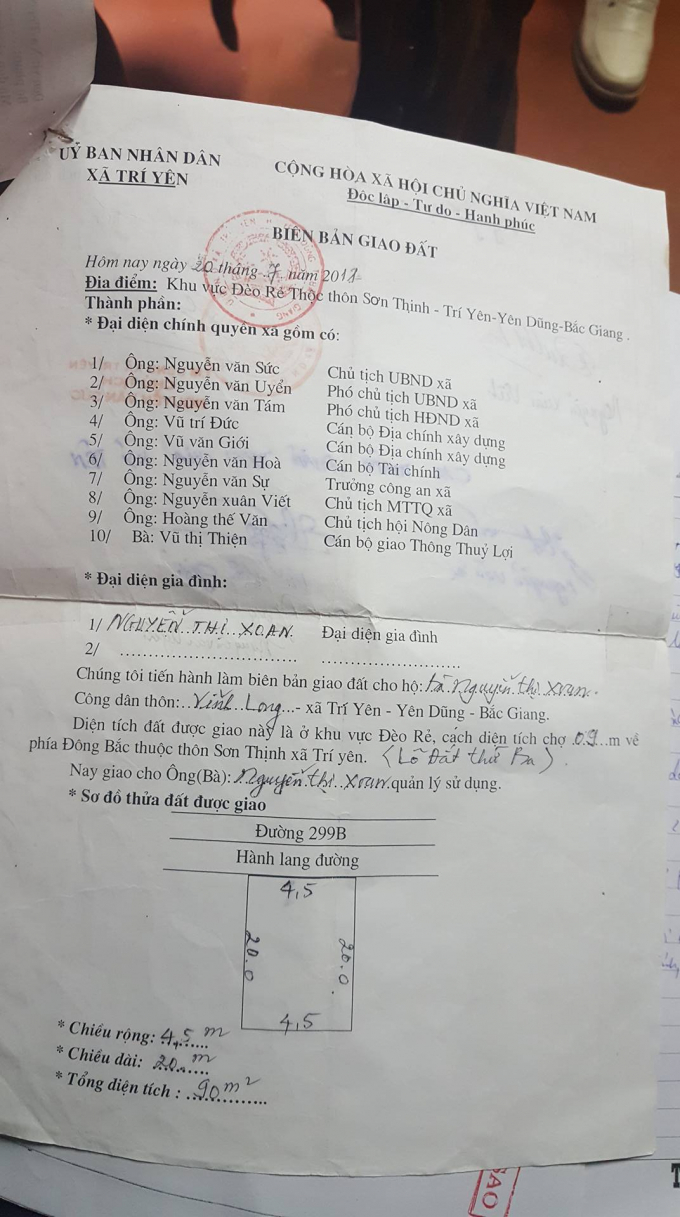 UỶ BAN NHÂN DÂN
XÃ TRÍ YÊN
CỘNG HÒA XÃ HỘI CHỦ NGHĨA VIỆT NAM
Độc lập - Tự do - Hạnh phúc
BIÊN BẢN GIAO ĐẤT
Hôm nay ngày 20 tháng 7 năm 2012
Địa điểm: Khu vực Đèo Rẻ Thộc thôn Sơn Thịnh - Trí Yên-Yên Dũng-Bắc Giang .
Thành phần:
* Đại diện chính quyền xã gồm có:
1/ Ông: Nguyễn văn Sức Chủ tịch UBND xã
2/ Ông: Nguyễn văn Uyển Phó chủ tịch UBND xã
3/ Ông: Nguyễn văn Tám Phó chủ tịch HĐND xã
4/ Ông: Vũ trí Đức Cán bộ Địa chính xây dựng
5/ Ông: Vũ văn Giới Cán bộ Địa chính xây dựng
6/ Ông: Nguyễn văn Hoà Cán bộ Tài chính
7/ Ông: Nguyễn văn Sự Trưởng công an xã
8/ Ông: Nguyễn xuân Viết Chủ tịch MTTQ xã
9/ Ông: Hoàng thế Văn Chủ tịch hội Nông Dân
10/ Bà: Vũ thị Thiện Cán bộ giao Thông Thuỷ Lợi
* Đại diện gia đình:
1/ NGUYỄN THỊ XOAN Đại diện gia đình
2/ .............................. ........................
Chúng tôi tiến hành làm biên bản giao đất cho hộ: bà Nguyễn thị Xoan.
Công dân thôn: Vĩnh Long - xã Trí Yên - Yên Dũng - Bắc Giang.
Diện tích đất được giao này là ở khu vực Đèo Rẻ, cách diện tích chợ 09 m về
phía Đông Bắc thuộc thôn Sơn Thịnh xã Trí yên. (Lô Đất thứ Ba).
Nay giao cho Ông(Bà): Nguyễn thị Xoan quản lý sử dụng.
* Sơ đồ thửa đất được giao
Đường 299B
Hành lang đường
4,5
20.0 20.0
4,5
* Chiều rộng: 4,5 m
* Chiều dài: 20 m
* Tổng diện tích : 90 m²